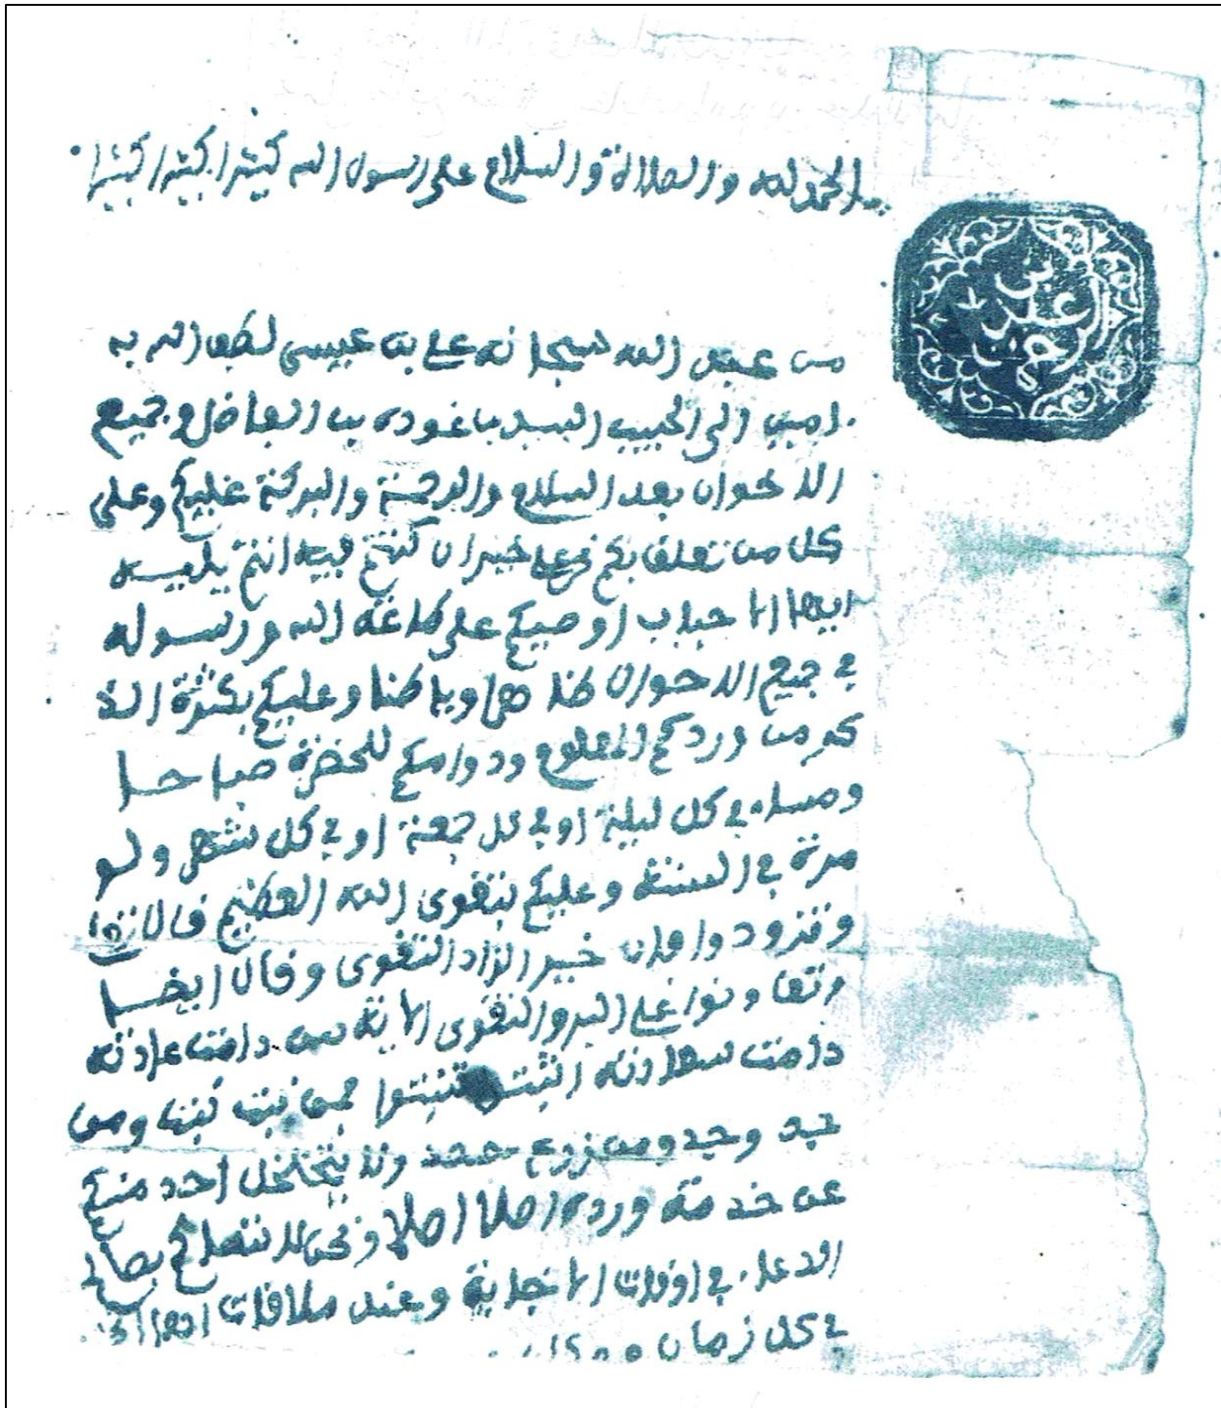 الحمد لله والصلاة والسلام على رسول الله كثيرا كثيرا كثيرا
من عبد الله سبحانه علي بن عيسى لطف الله به
امين الى الحبيب السيد باعوده بن الفاضل وجميع
الاخوان بعد السلام والرحمة والبركة عليكم وعلى
كل من تعلق بكم فعلى خير ان كنتم فيه انتم
ايها الاحباب اوصيكم على طاعة الله ورسوله
في جميع الاحوال ظاهرا وباطنا وعليكم بكثرة الذ
كر من وردكم المعلوم ودوامكم للحضرة صباحا
ومساء في كل ليلة او في كل جمعة او في كل شهر ولو
مرة في السنة وعليكم بتقوى الله العظيم قال تعا
وتزودوا فان خير الزاد التقوى وقال ايضا
وتعاونوا على البر والتقوى الاية من دامت عادته
دامت سعادته تثبتوا فمن ثبت نبت ومن
جد وجد ومن زرع حصد ولا احد منكم
عن خدمة ورده اصلا اصلا ونحن لا بصالح
الدعاء في اوقات الاجابة وعند ملاقات
في كل زمان
بن
عبد
الرحمن